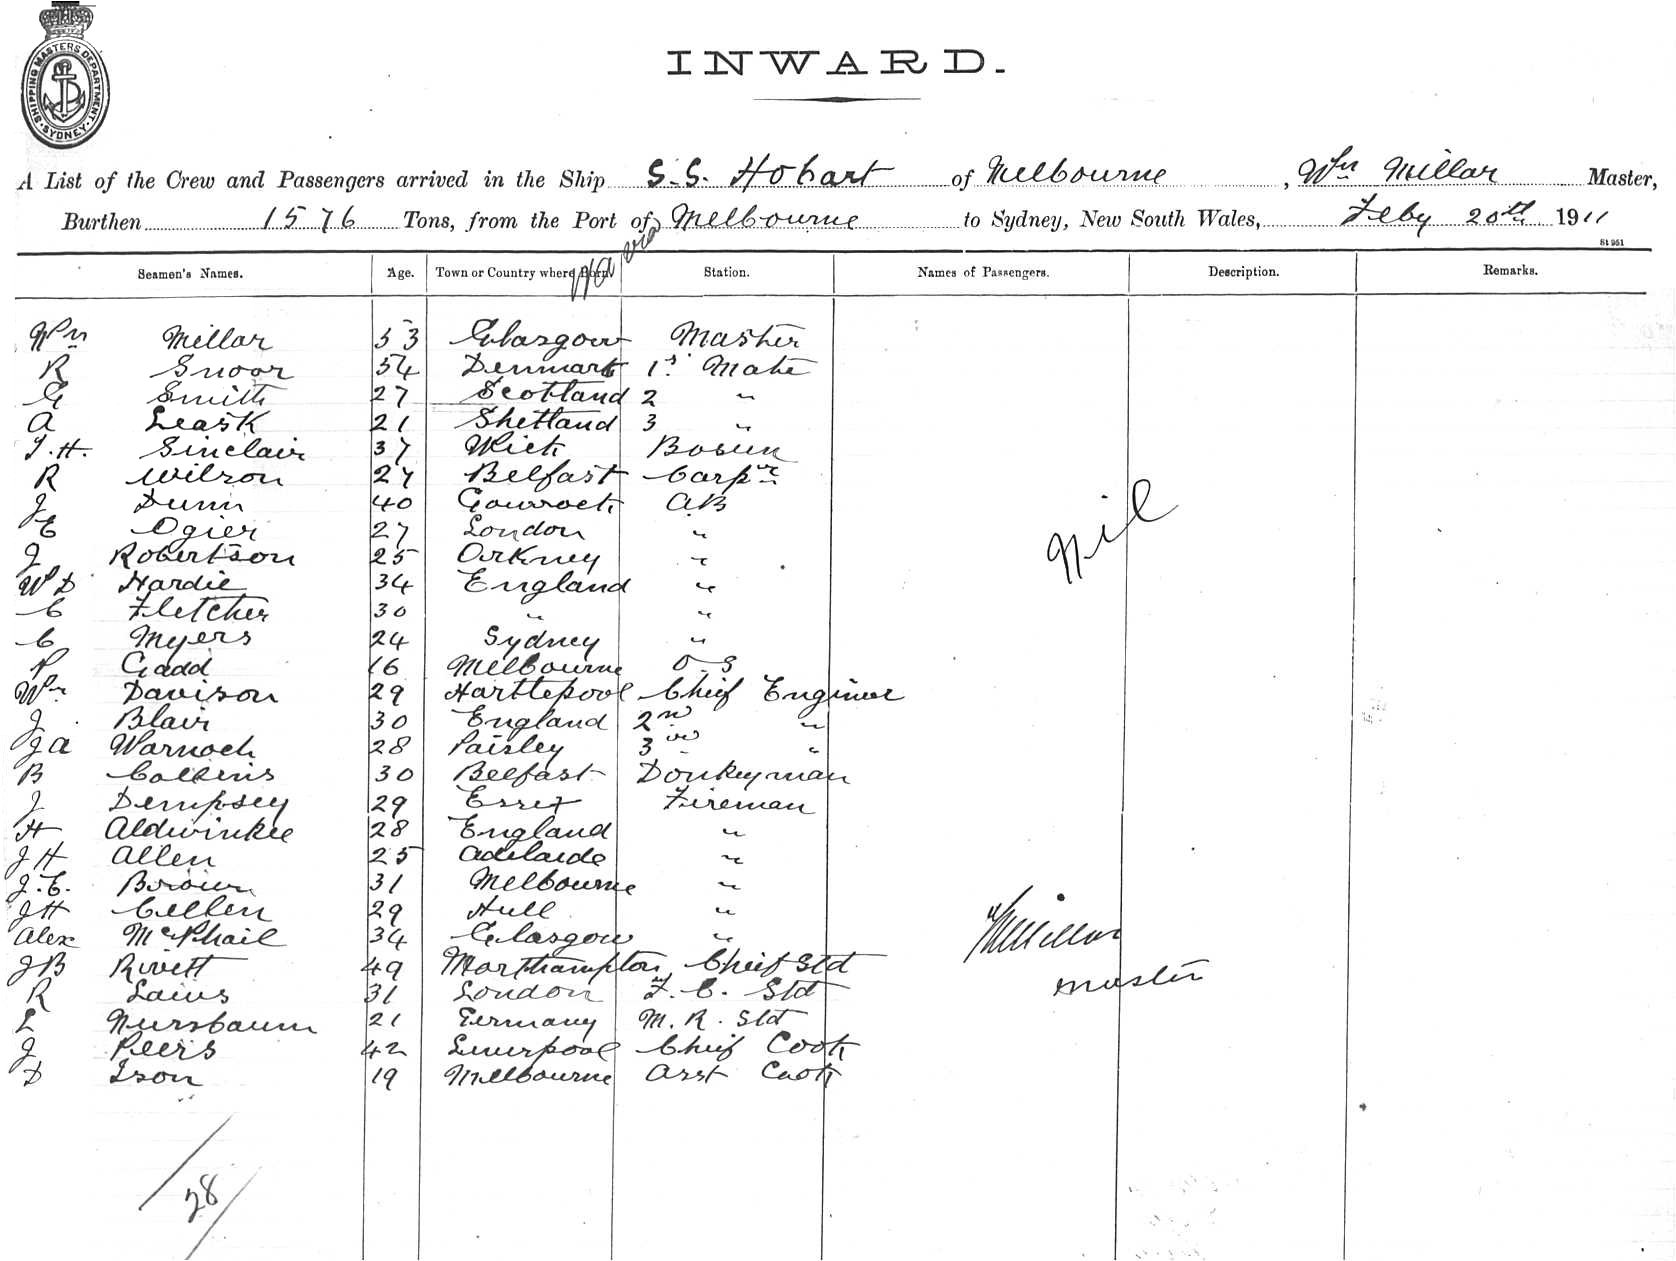 SHIPPING MASTERS DEPARTMENT. SYDNEY.
INWARD.
A List of the Crew and Passengers arrived in the Ship S.S. Hobart of Melbourne, Wm Millar Master,
Burthen 1576 Tons, from the Port of Melbourne to Sydney, New South Wales, Feby 20th 1911
via
St 951
Seamen's Names. Age. Town or Country where Born Station. Names of Passengers. Description. Remarks.
Wm Millar 53 Glasgow Master
R Snoor 54 Denmark 1s Mate
G Smith 27 Scotland 2 "
A Leask 21 Shetland 3 "
J.H. Sinclair 37 Wick Bosun
R Wilson 27 Belfast Carpr
J Dunn 40 Gourock AB
E Ogier 27 London "
J Robertson 25 Orkney "
W D Hardie 34 England "
C Fletcher 30 " "
C Myers 24 Sydney "
P Gadd 16 Melbourne O.S
Wm Davison 29 Hartlepool Chief Engineer
J. Blair 30 England 2nd "
J A Warnock 28 Paisley 3rd "
B Collins 30 Belfast Donkeyman
J Dempsey 29 Essex Fireman
H Aldwinkle 28 England "
J H Allen 25 Adelaide "
J.E. Brown 31 Melbourne "
J H Cullen 29 Hull "
Alex McPhail 34 Glasgow "
J B Rivett 49 Northampton Chief Std
R Laius 31 London F.C. Std
L Nursbaum 21 Germany M.R. Std
J Peers 42 Liverpool Chief Cook
D Ison 19 Melbourne Asst Cook
Nil
WMillar
Master
28